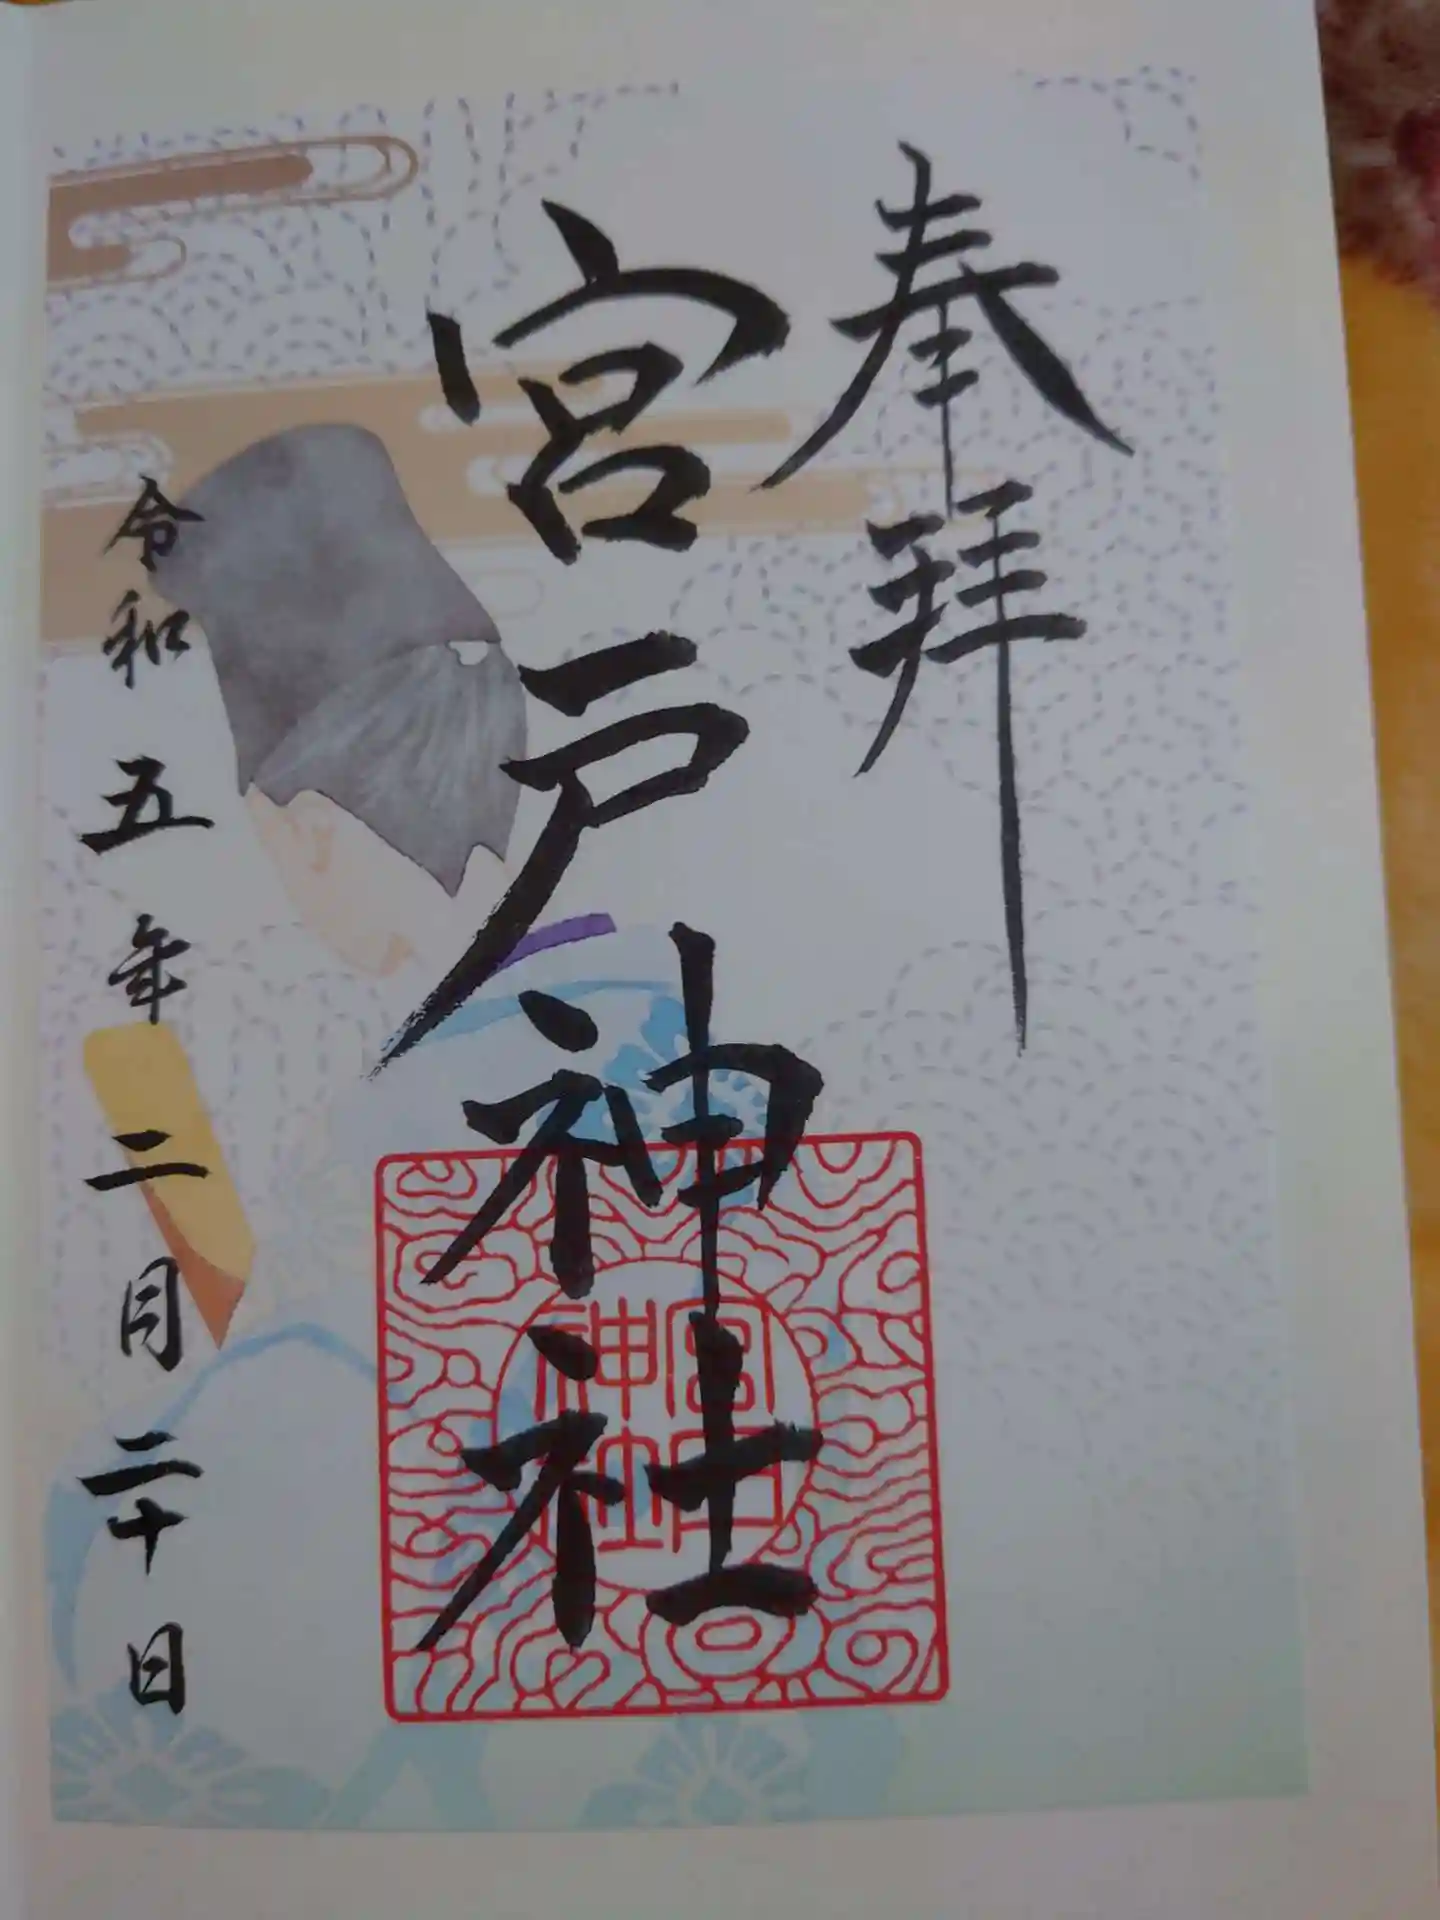 奉拝
宮戸神社
宮戸
神社
令和五年二月二十日